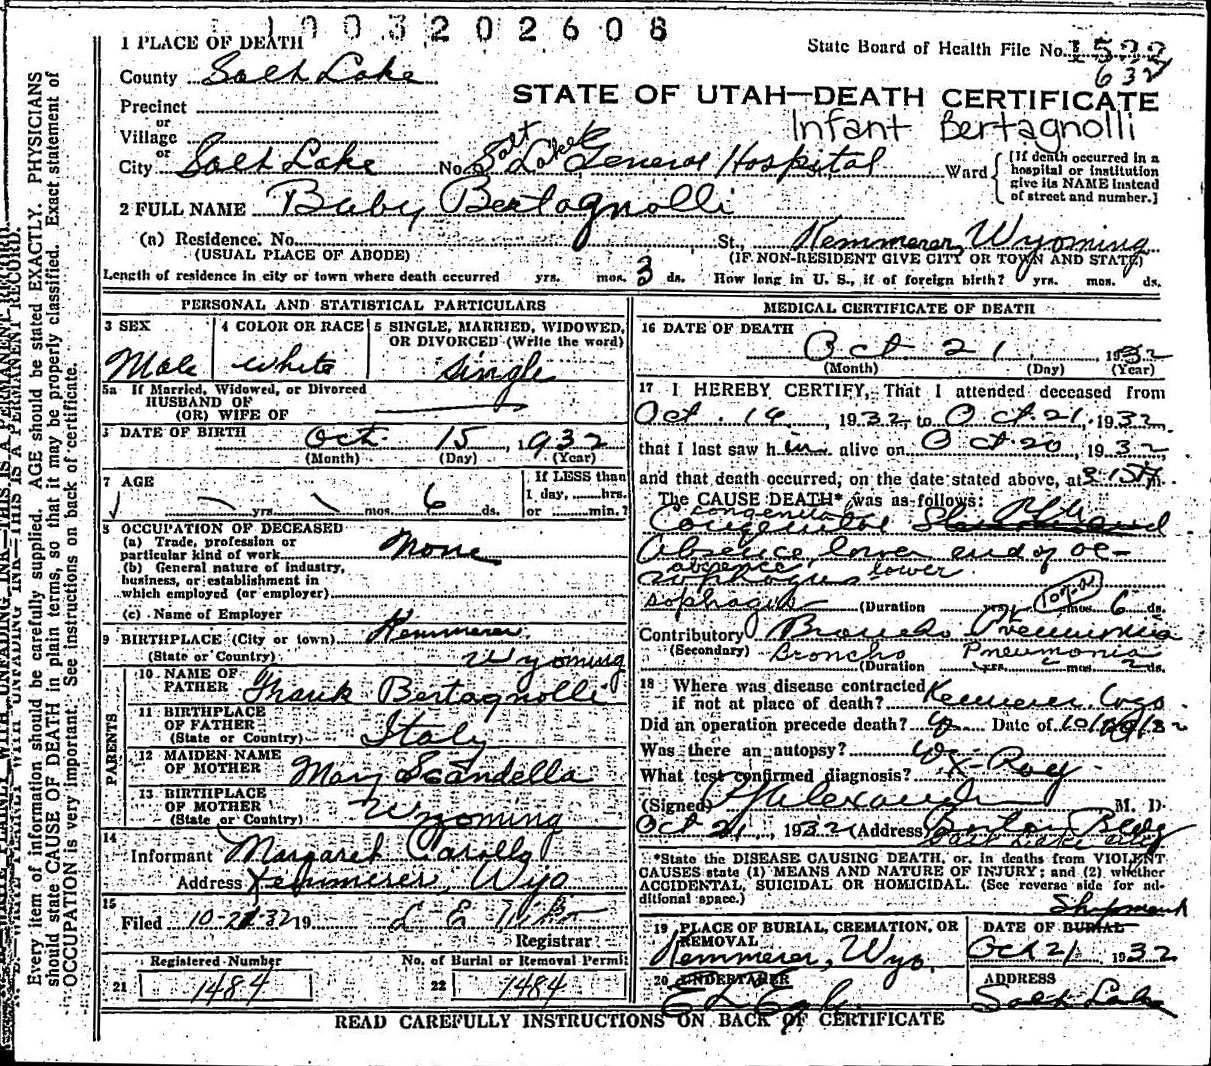 1003202608
1 PLACE OF DEATH
State Board of Health File No. 1522
632
County Salt Lake
STATE OF UTAH—DEATH CERTIFICATE
Precinct
or
Infant Bertagnolli
Village
or
City Salt Lake No. Salt Lake General Hospital Ward
[If death occurred in a hospital or institution give its NAME instead of street and number.]
2 FULL NAME Baby Bertagnolli
(a) Residence. No. St., Kemmerer, Wyoming
(USUAL PLACE OF ABODE) (IF NON-RESIDENT GIVE CITY OR TOWN AND STATE)
Length of residence in city or town where death occurred yrs. mos. 3 ds. How long in U. S., if of foreign birth? yrs. mos. ds.
PERSONAL AND STATISTICAL PARTICULARS
3 SEX 4 COLOR OR RACE 5 SINGLE, MARRIED, WIDOWED, OR DIVORCED (Write the word)
Male white single
5a If Married, Widowed, or Divorced
HUSBAND OF
(OR) WIFE OF
DATE OF BIRTH Oct. 15, 1932
(Month) (Day) (Year)
7 AGE yrs. mos. 6 ds.
If LESS than
1 day, hrs.
or min.?
8 OCCUPATION OF DECEASED
(a) Trade, profession or
particular kind of work None
(b) General nature of industry,
business, or establishment in
which employed (or employer)
(c) Name of Employer
9 BIRTHPLACE (City or town) Kemmerer
(State or Country) Wyoming
PARENTS
10 NAME OF
FATHER Frank Bertagnolli
11 BIRTHPLACE
OF FATHER
(State or Country) Italy
12 MAIDEN NAME
OF MOTHER Mary Scandella
13 BIRTHPLACE
OF MOTHER
(State or Country) Wyoming
14
Informant Margaret Carollo
Address Kemmerer, Wyo
15
Filed 10-21-32 19
Registrar
Registered Number No. of Burial or Removal Permit
21 1484 22 1484
MEDICAL CERTIFICATE OF DEATH
16 DATE OF DEATH
Oct. 21, 1932
(Month) (Day) (Year)
17 I HEREBY CERTIFY, That I attended deceased from
Oct. 19, 1932 to Oct. 21, 1932
that I last saw him alive on Oct. 20, 1932,
and that death occurred, on the date stated above, at 3:15 m.
The CAUSE DEATH* was as follows:
congenital
Congenital
Absence lower end of oe-
absence lower
sophagus
sophagus (Duration yrs. mos. 6 ds.
Contributory Broncho Pneumonia
(Secondary) Broncho Pneumonia
(Duration yrs. mos. 2 ds.
18 Where was disease contracted
if not at place of death? Kemmerer
Did an operation precede death? Date of 10/20/32
Was there an autopsy?
What test confirmed diagnosis? X-Ray
(Signed) Alexander M. D.
Oct 21, 1932 (Address) Boston Bldg
Salt Lake City
*State the DISEASE CAUSING DEATH, or, in deaths from VIOLENT
CAUSES state (1) MEANS AND NATURE OF INJURY; and (2) whether
ACCIDENTAL, SUICIDAL OR HOMICIDAL. (See reverse side for ad-
ditional space.)
Shipment
19 PLACE OF BURIAL, CREMATION, OR REMOVAL DATE OF BURIAL
Kemmerer, Wyo. Oct 21 1932
20 UNDERTAKER ADDRESS
Salt Lake
READ CAREFULLY INSTRUCTIONS ON BACK OF CERTIFICATE
Every item of information should be carefully supplied. AGE should be stated EXACTLY. PHYSICIANS
should state CAUSE OF DEATH in plain terms, so that it may be properly classified. Exact statement of
OCCUPATION is very important. See instructions on back of certificate.